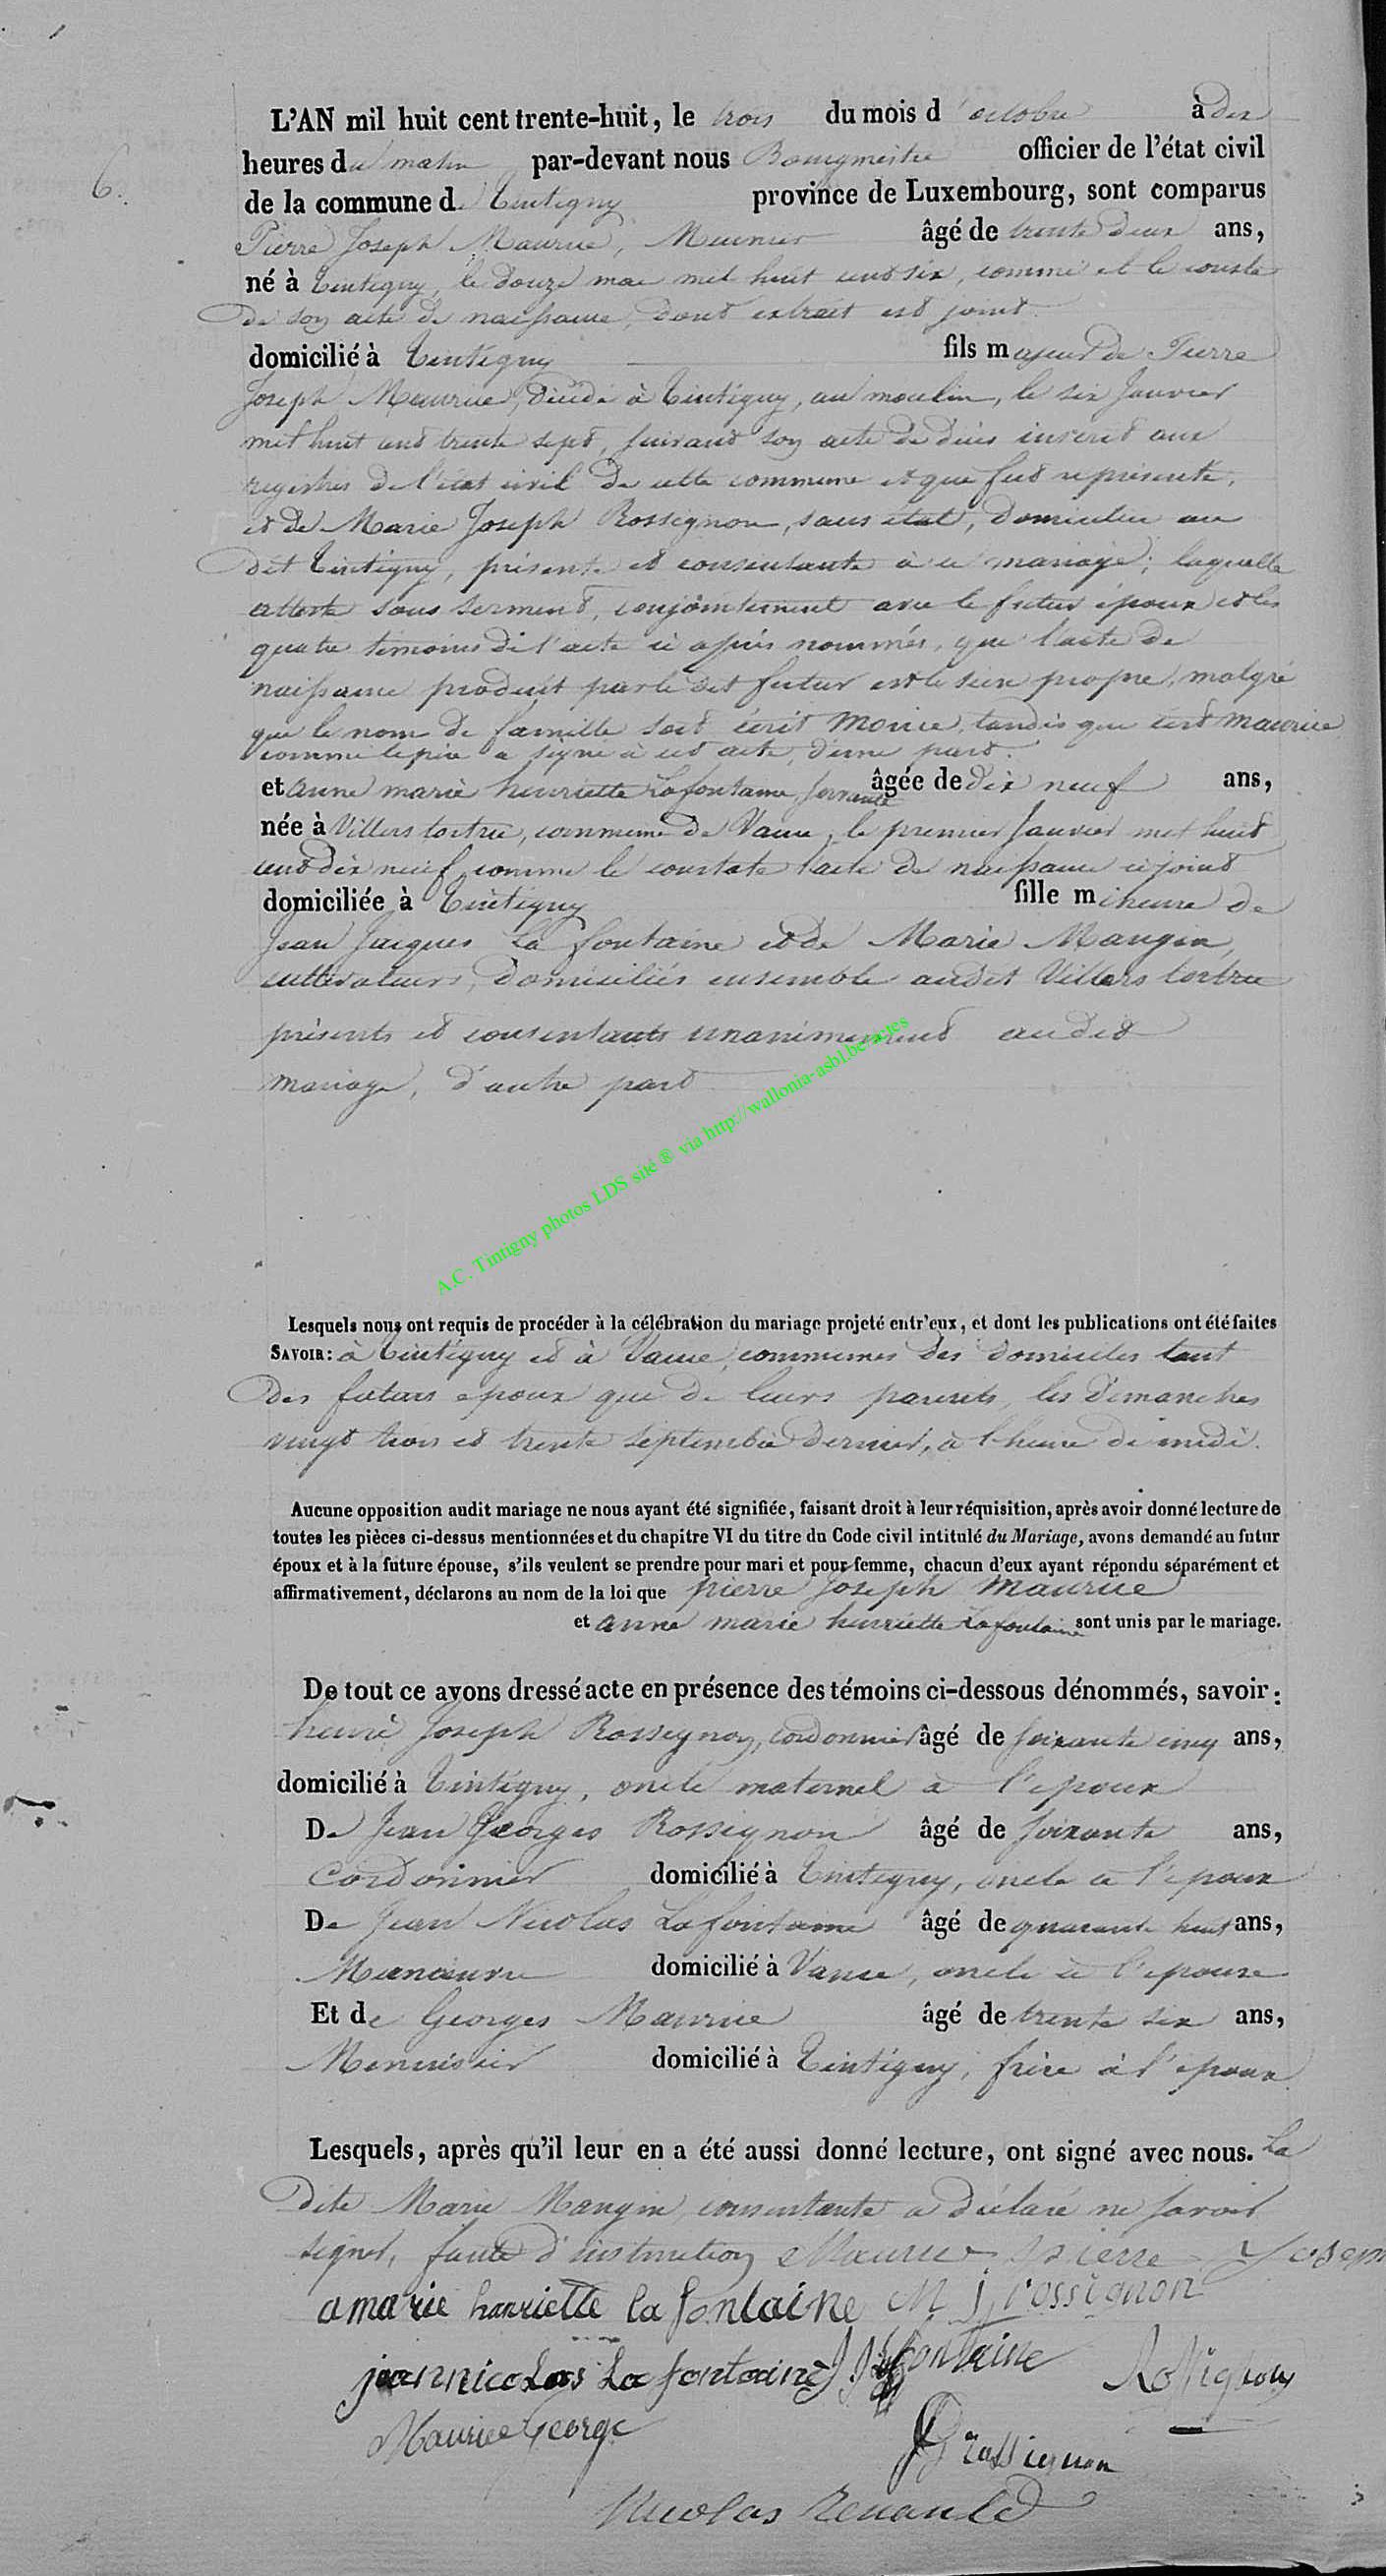 6.
L'AN mil huit cent trente-huit, le trois du mois d'octobre à dix
heures du matin par-devant nous Bourgmestre officier de l'état civil
de la commune de Tintigny province de Luxembourg, sont comparus
Pierre Joseph Maurice, Meunier âgé de trente deux ans,
né à Tintigny, le douze mai mil huit cent six, comme et le conste
de son acte de naissance, dont extrait est joint
domicilié à Tintigny fils majeur de Pierre
Joseph Maurice, décédé à Tintigny, au moulin, le six Janvier
mil huit cent trente sept, suivant son acte de décès inscrit aux
registres de l'état civil de cette commune et que fut représenté,
et de Marie Joseph Rossignon, sans état, domiciliée au
dit Tintigny, présente et consentante à ce mariage; laquelle
atteste sous serment, conjointement avec le futur époux et les
quatre temoins de l'acte ci après nommés, que l'acte de
naissance produit par le dit futur est le sien propre, malgré
que le nom de famille soit écrit Morice, tandis que c'est Maurice
comme le père a signé à cet acte, d'une part.
et anne marie henriette Lafontaine, servante âgée de dix neuf ans,
née à Villers tortru, commune de Vance, le premier Janvier mil huit
cent dix neuf comme le constate l'acte de naissance ci joint
domiciliée à Tintigny fille mineure de
Jean Jacques La fontaine et de Marie Mangin,
cultivateurs, domiciliés ensemble audit Villers tortru
présents et consentants unanimement audit
mariage, d'autre part
A.C. Tintigny photos LDS site ® via http://wallonia-asbl.be/actes
Lesquels nous ont requis de procéder à la célébration du mariage projeté entr'eux, et dont les publications ont été faites
SAVOIR: à Tintigny et à Vance, communes des domiciles tant
des futurs epoux que de leurs parents, les dimanches
vingt trois et trente septembre dernier, à l'heure de midi.
Aucune opposition audit mariage ne nous ayant été signifiée, faisant droit à leur réquisition, après avoir donné lecture de
toutes les pièces ci-dessus mentionnées et du chapitre VI du titre du Code civil intitulé du Mariage, avons demandé au futur
époux et à la future épouse, s'ils veulent se prendre pour mari et pour femme, chacun d'eux ayant répondu séparément et
affirmativement, déclarons au nom de la loi que pierre Joseph Maurice
et anne marie henriette Lafontaine sont unis par le mariage.
De tout ce avons dressé acte en présence des témoins ci-dessous dénommés, savoir:
henri Joseph Rossignon, cordonnier âgé de soixante cinq ans,
domicilié à Tintigny, oncle maternel à l'epoux
De Jean Georges Rossignon âgé de soixante ans,
Cordonnier domicilié à Tintigny, oncle a l'epoux
De Jean Nicolas Lafontaine âgé de quarante huit ans,
Manoeuvre domicilié à Vance, oncle à l'epouse
Et de Georges Maurice âgé de trente six ans,
Menuisier domicilié à Tintigny, frère à l'epoux
Lesquels, après qu'il leur en a été aussi donné lecture, ont signé avec nous. La
dite Marie Mangin consentante a déclaré ne savoir
signer, faute d'instruction Maurice pierre Joseph
a marie henriette la fontaine M J rossignon
jean nicolas La fontaine J J lafontaine Rossignon
Maurice George JG rossignon
Nicolas Renauld